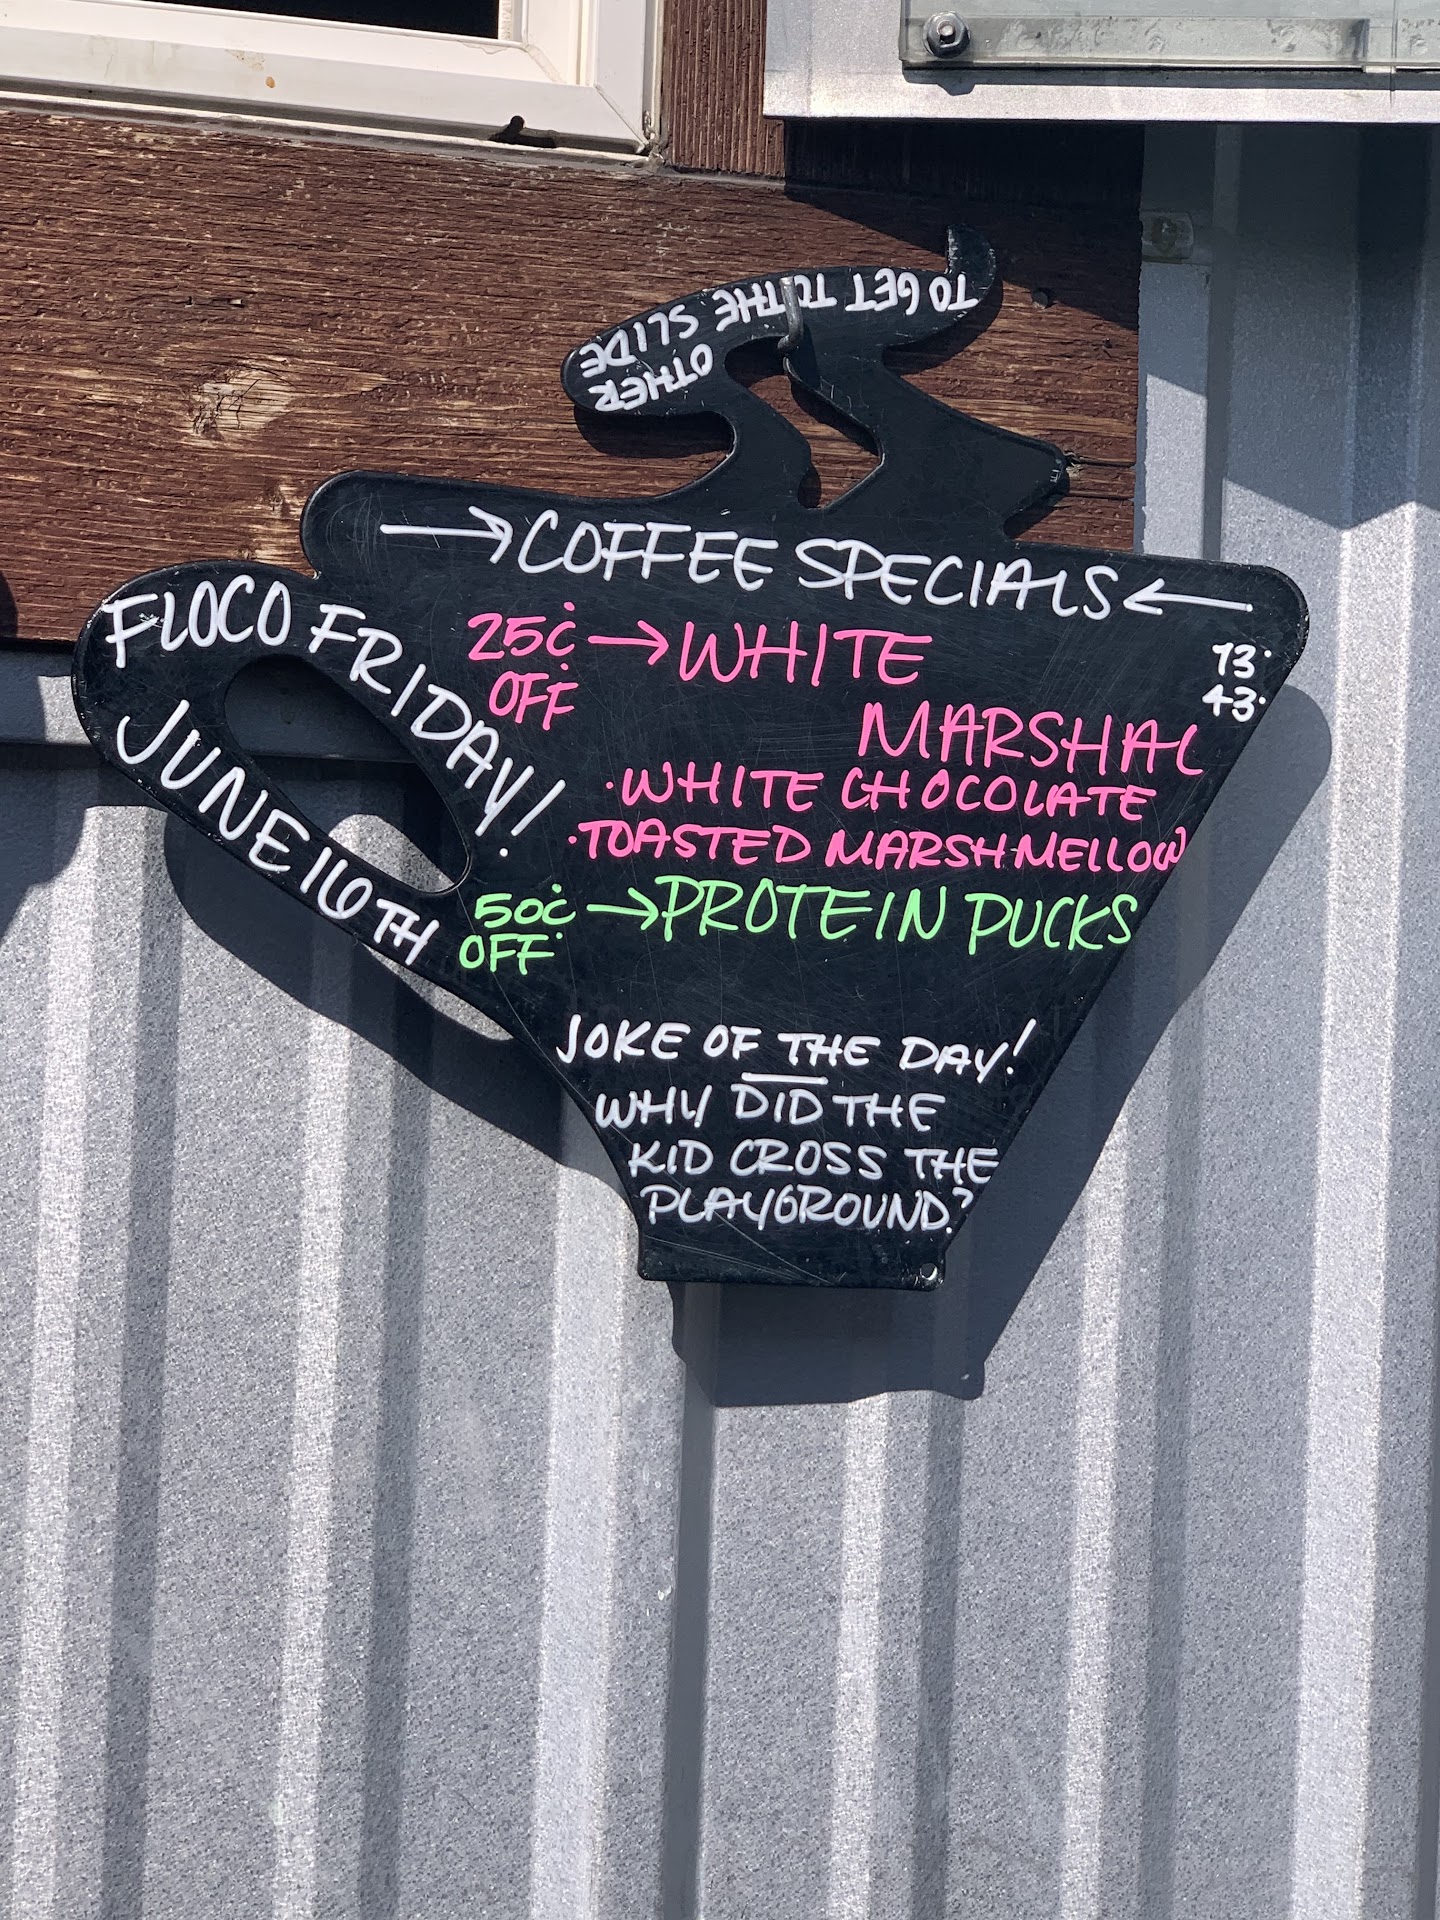 → COFFEE SPECIALS ←
FLOCO FRIDAY!
JUNE 16TH
25¢ → WHITE
OFF
MARSHAL
73°
43°
·WHITE CHOCOLATE
·TOASTED MARSHMELLOW
50¢ → PROTEIN PUCKS
OFF
JOKE OF THE DAY!
WHY DID THE
KID CROSS THE
PLAYGROUND?
TO GET TO THE
OTHER
SLIDE